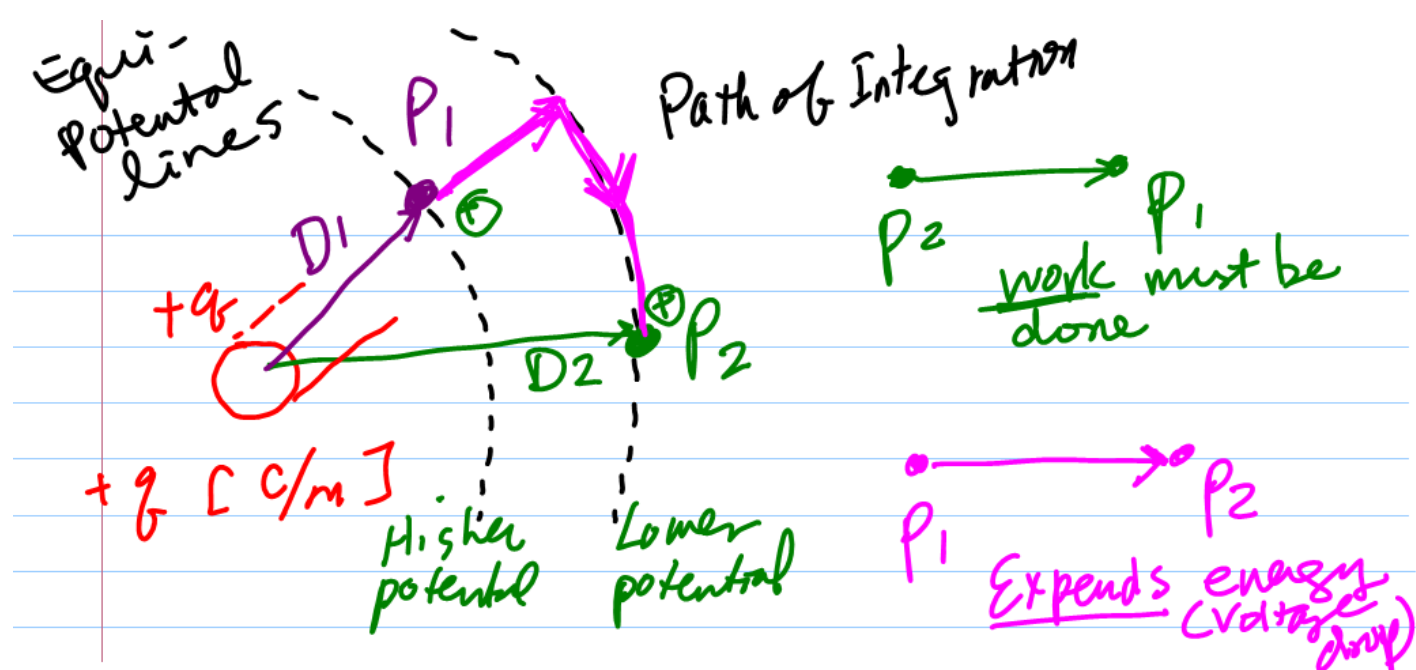 Equi-
potential
lines
P1
Path of Integration
+
D1
P2
P1
work must be
done
+q
+
P2
D2
+q [C/m]
Higher
potential
Lower
potential
P1
P2
Expends energy
(Voltage
drop)